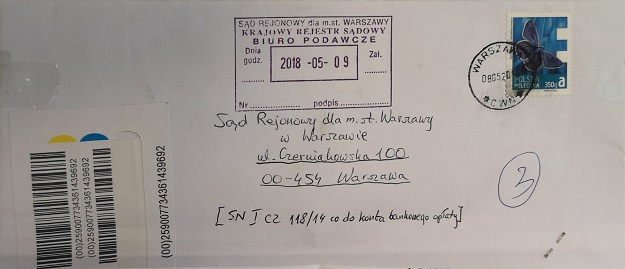 SĄD REJONOWY dla m.st. WARSZAWY
KRAJOWY REJESTR SĄDOWY
BIURO PODAWCZE
Dnia
godz.
2018 -05- 09
Zał.
Nr
podpis
WARSZAWA
CWN
E
POLSKA
350g a
Sąd Rejonowy dla m. st. Warszawy
w Warszawie
ul. Czerniakowska 100
00-454 Warszawa
3
[SN I CZ 118/14 co do konta bankowego opłaty]
(00)259007734361439692
(00)259007734361439692
(00)259007734361439692